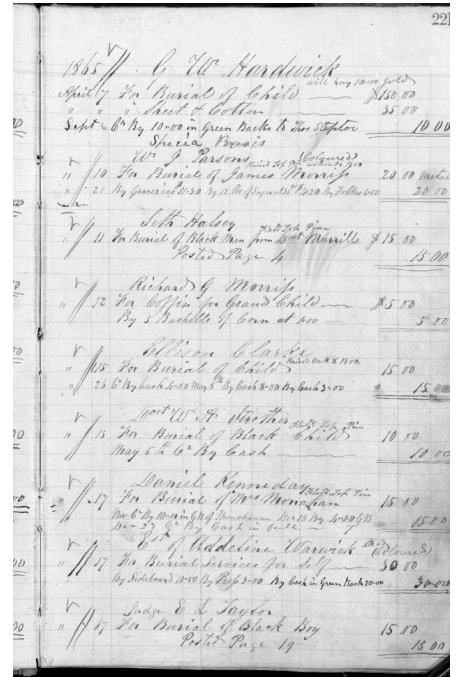 221
1865 // G Wm Hardwick
will pay 10.00 Gold
April 7 For Burial of Child $150.00
" " " Sheet & Cotton 35 00
Sept 6th By 10.00 in Green Backs to Thos 10 00
Specia Basis
Wm J Parsons (Coloured)
" 10 For Burial of James Morriss 20 00
" 21 By Groceries 11.30 By 12 20.00
Seth Halsey
Half Top Pine
" 11 For Burial of Black Man from Merrills $15 00
Posted Page 4 15 00
Richard G Morriss
" 12 For Coffin for Grand Child $5 00
By 5 Bushells of Corn at 5 00
Ellison Clarke
" 15 For Burial of Child 15 00
" 26 Cr By Cash 4.00 May 5th By Cash 8.00 By Cash 3.00 15 00
Doct W A Strother
Half Top Pine
" 15 For Burial of Black Child 10 00
May 5th Cr By Cash 10 00
Daniel Kenneday
Half Top Pine
" 17 For Burial of Mrs Monahan 15 00
Nov 6th By 10.00 in GB of Monahanan Dec 13 By 4.00 GB 15 00
Dec 27 Cr By Cash in full
Est of Addeline Warwick (Coloured)
" 17 For Burial Services for Self 30 00
By Sideboard 10.00 By 3.00 By Cash in Green Back 20.00 30.00
Judge E L Taylor
" 17 For Burial of Black Boy 15.00
Posted Page 19 15 00